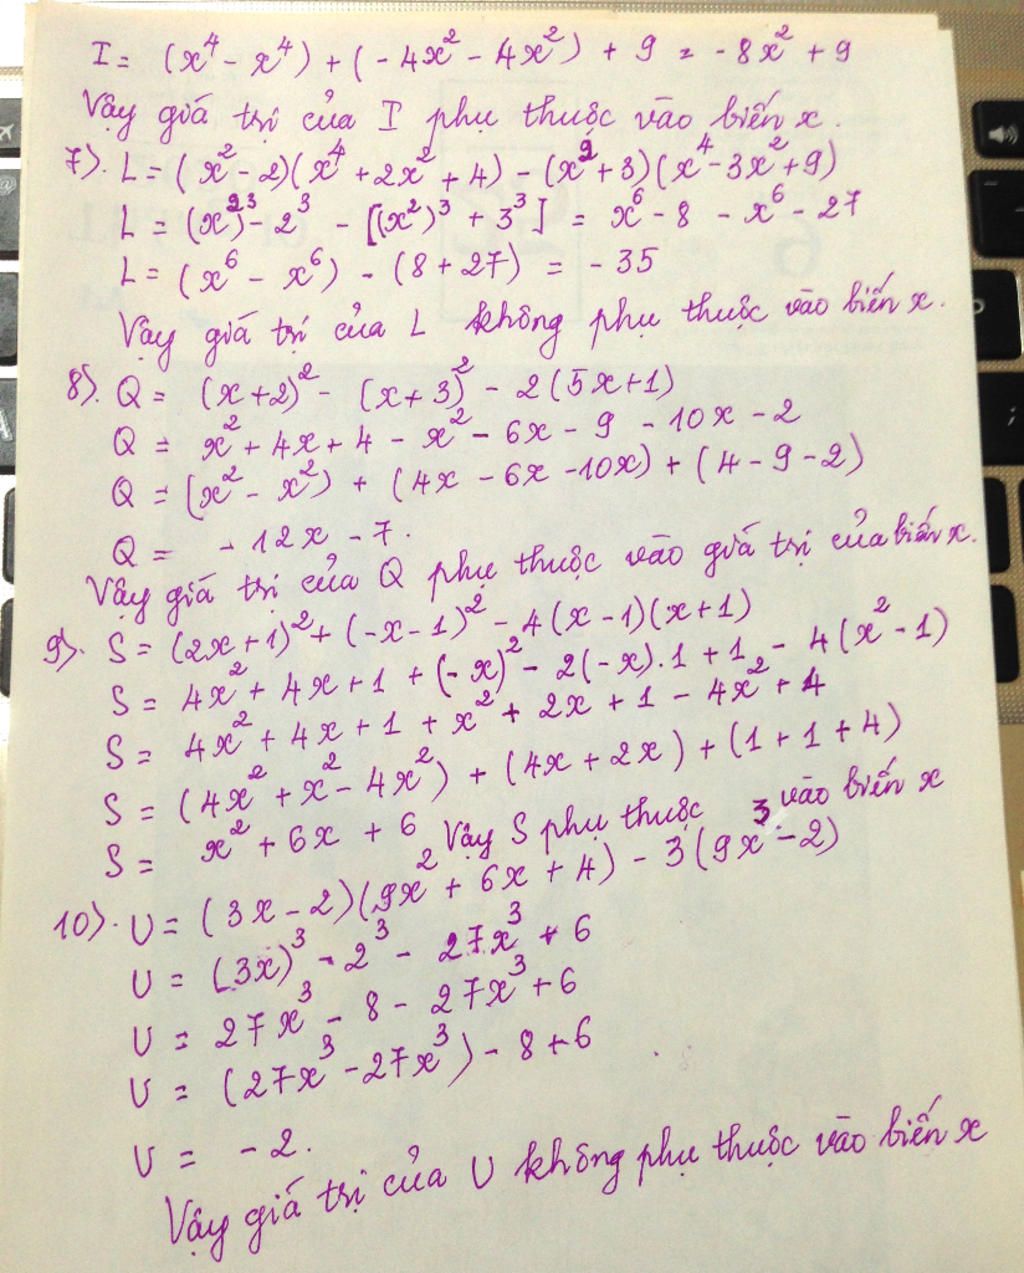 I = (x⁴ - x⁴) + (-4x² - 4x²) + 9 = -8x² + 9
Vậy giá trị của I phụ thuộc vào biến x.
7). L = (x² - 2)(x⁴ + 2x² + 4) - (x² + 3)(x⁴ - 3x² + 9)
L = (x²)³ - 2³ - [(x²)³ + 3³] = x⁶ - 8 - x⁶ - 27
L = (x⁶ - x⁶) - (8 + 27) = -35
Vậy giá trị của L không phụ thuộc vào biến x.
8). Q = (x+2)² - (x+3)² - 2(5x+1)
Q = x² + 4x + 4 - x² - 6x - 9 - 10x - 2
Q = (x² - x²) + (4x - 6x - 10x) + (4 - 9 - 2)
Q = -12x - 7.
Vậy giá trị của Q phụ thuộc vào giá trị của biến x.
9). S = (2x+1)² + (-x-1)² - 4(x-1)(x+1)
S = 4x² + 4x + 1 + (-x)² - 2(-x).1 + 1² - 4(x² - 1)
S = 4x² + 4x + 1 + x² + 2x + 1 - 4x² + 4
S = (4x² + x² - 4x²) + (4x + 2x) + (1 + 1 + 4)
S = x² + 6x + 6 Vậy S phụ thuộc vào biến x
10). U = (3x - 2)(9x² + 6x + 4) - 3(9x³ - 2)
U = (3x)³ - 2³ - 27x³ + 6
U = 27x³ - 8 - 27x³ + 6
U = (27x³ - 27x³) - 8 + 6
U = -2.
Vậy giá trị của U không phụ thuộc vào biến x